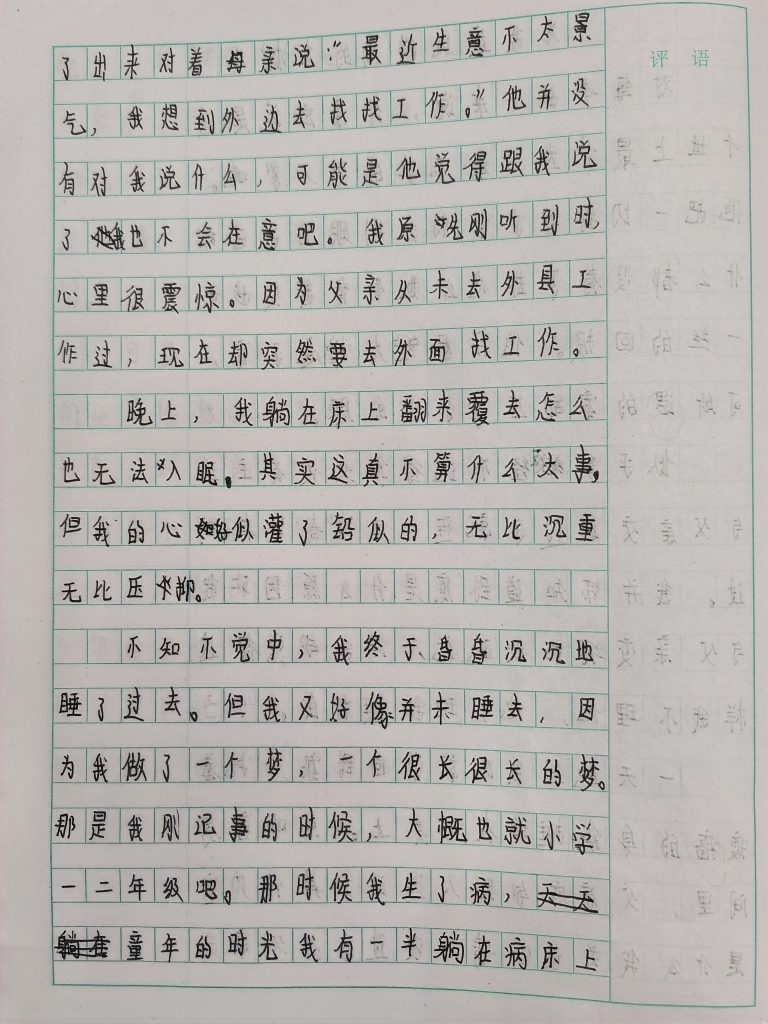 评 语
了出来对着母亲说:“最近生意不太景
气,我想到外边去找找工作。”他并没
有对我说什么,可能是他觉得跟我说
了我也不会在意吧。我原先刚听到时,
心里很震惊。因为父亲从未去外县工
作过,现在却突然要去外面找工作。
晚上,我躺在床上翻来覆去怎么
也无法入眠。其实这真不算什么大事,
但我的心好似灌了铅似的,无比沉重
无比压抑。
不知不觉中,我终于昏昏沉沉地
睡了过去。但我又好像并未睡去,因
为我做了一个梦,一个很长很长的梦。
那是我刚记事的时候,大概也就小学
一二年级吧。那时候我生了病,
童年的时光我有一半躺在病床上